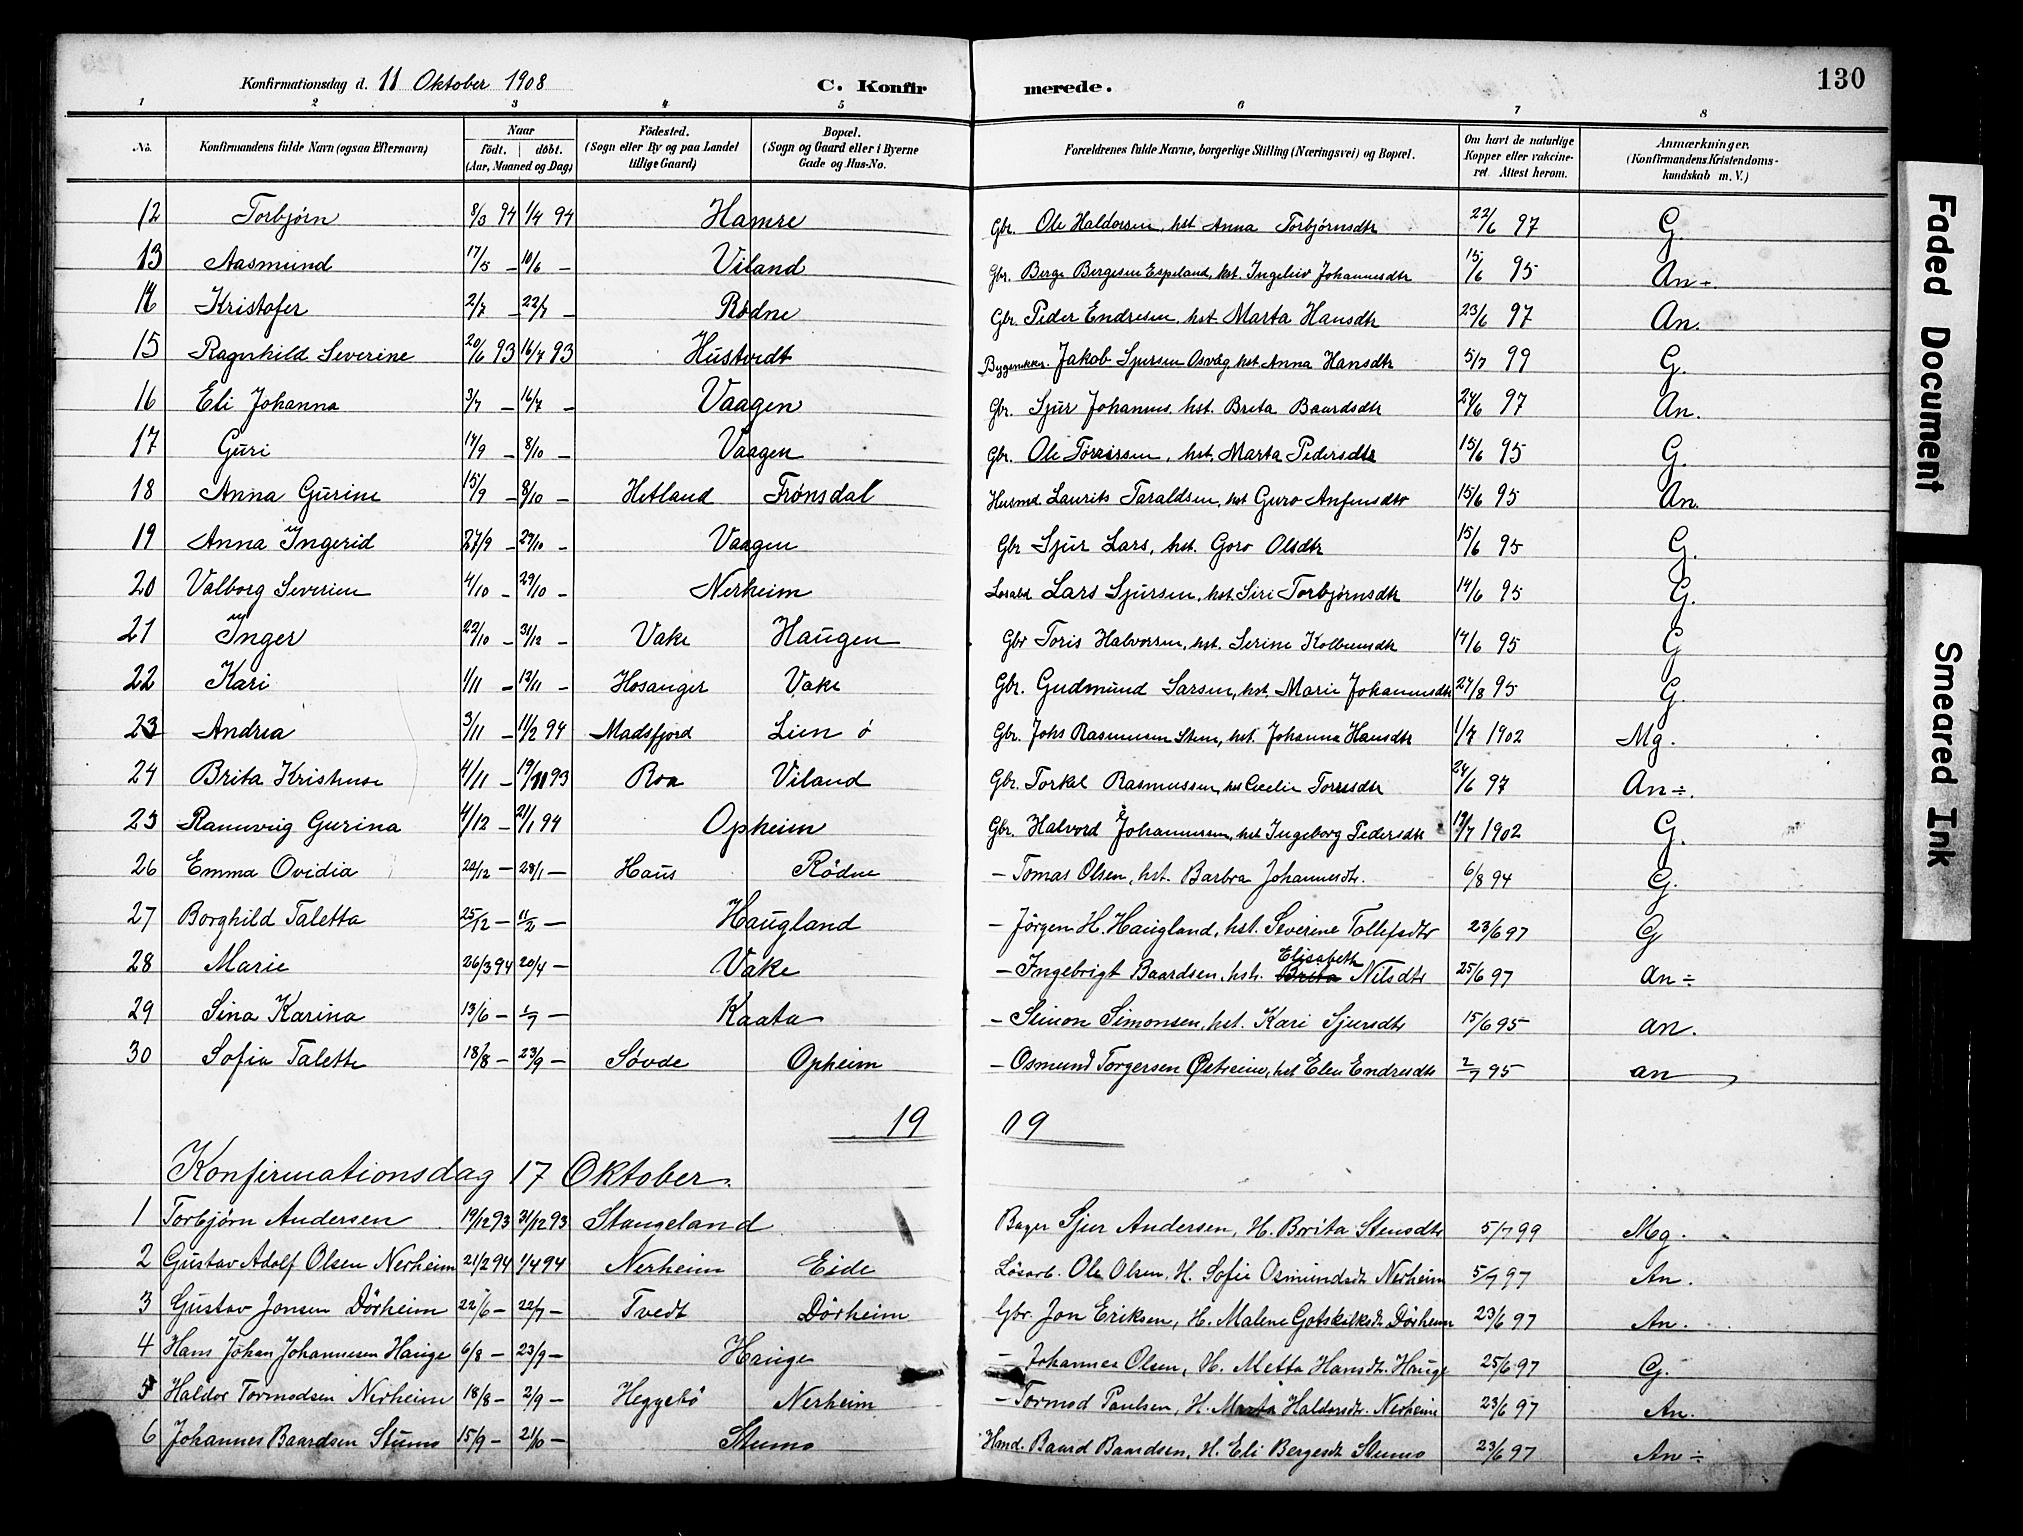 130
Konfirmationsdag d. 11 Oktober 1908 C. Konfirmerede.
1 2 3 4 5 6 7 8
No. Konfirmandens fulde Navn (ogsaa Efternavn) Naar født. døbt. (Aar, Maaned og Dag) Födested. (Sogn eller By og paa Landet tillige Gaard) Bopæl. (Sogn og Gaard eller i Byerne Gade og Hus-No. Forældrenes fulde Navne, borgerlige Stilling (Næringsvei) og Bopæl. Om havt de naturlige Kopper eller vakcineret. Attest herom. Anmærkninger. (Konfirmandens Kristendomskundskab m. V.)
12 Torbjørn 8/3 94 1/4 94 Hamre Gbr. Ole Haldorsen, hst Anna Torbjørnsdtr 22/6 97 G.
13 Aasmund 17/5 - 10/6 - Viland Gbr. Berge Bergesen Espeland, hst. Ingeleiv Johannesdtr 15/6 95 An ÷
14 Kristofer 2/7 - 22/7 - Rødne Gbr. Peder Endresen, hst Marta Hansdtr 23/6 97 An.
15 Ragnhild Severine 20/6 93 16/7 93 Hustvedt Jakob Sjursen Osvag, hst Anna Hansdtr 5/7 99 G.
16 Eli Johanna 3/7 - 16/7 - Vaagen Gbr. Sjur Johannes, hst. Brita Baardsdtr 24/6 97 An.
17 Guri 14/9 - 8/10 - Vaagen Gbr. Ole Torrisen, hst. Marta Pedersdtr 15/6 95 G.
18 Anna Gurine 15/9 - 8/10 - Hetland Frønsdal Husmd Laurits Taraldsen, hst Guro Anfinsdtr 15/6 95 An.
19 Anna Ingerid 27/9 - 29/10 - Vaagen Gbr Sjur Lars, hst. Goro Olsdtr 15/6 95 G.
20 Valborg Severine 4/10 - 29/10 - Nerheim Lars Sjursen, hst. Siri Torbjørnsdtr 14/6 95 G.
21 Inger 22/10 - 31/12 - Vake Haugen Gbr Toris Halvorsen, hst. Serine Kolbeinsdtr 14/6 95 G
22 Kari 1/11 - 12/11 - Hosanger Vake Gbr. Gudmund Larsen, hst. Marie Johannesdtr 27/8 95 G.
23 Andrea 3/11 - 11/2 94 Madsfjord Lien ö Gbr. Johs Rasmussen Stene, hst. Johanna Hansdtr 1/7 1902 Mg.
24 Brita Kristense 4/11 - 19/11 93 Roa Viland Gbr. Torkel Rasmussen, hst Cecelie Torresdtr 24/6 97 An ÷.
25 Rannveig Gurina 4/12 - 21/1 94 Opheim Gbr. Halvord Johannessen, hst Ingeborg Pedersdtr 12/7 1902 G.
26 Emma Ovidia 22/12 - 28/1 - Haus Rödne - Tomas Olsen, hst. Barbra Johannesdtr. 6/8 94 G.
27 Borghild Taletta 25/12 - 11/2 - Haugland - Jörgen H. Haugland, hst. Severine Tollefsdtr 23/6 97 G
28 Marie 26/3 94 20/4 - Vake - Ingebrigt Baardsen, hstr. Brita Elisabeth Nilsdtr 25/6 97 an ÷
29 Sina Karina 13/6 - 1/7 - Kaata - Simon Simonsen, hst. Kari Sjursdtr 15/6 95 an.
30 Sofia Talette 18/8 - 23/9 - Sövde Opheim - Osmund Torgersen Østreim, hst Elen Endresdtr 2/7 95 an
19 19
Konfirmationsdag 17 Oktober.
1 Torbjørn Andersen 19/12 93 31/12 93 Stangeland Bager Sjur Andersen, H. Brita Stensdtr 5/7 99 Mg.
2 Gustav Adolf Olsen Nerheim 21/2 94 1/4 94 Nerheim Eide Lösarb. Ole Olsen, H. Sofie Osmundsdtr Nerheim 5/7 97 An.
3 Gustav Jonsen Dörheim 22/6 - 22/7 - Tvedt Dörheim Gbr. Jon Eriksen, H. Malene Gotskalksdtr Dörheim 23/6 97 An.
4 Hans Johan Johannesen Hauge 6/8 - 23/9 - Hauge - Johannes Olsen, H. Metta Hansdtr. Hauge 25/6 97 G.
5 Haldor Tormodsen Nerheim 18/8 - 2/9 - Heggebö Nerheim - Tormod Paulsen, H. Marta Haldorsdtr. Nerheim 23/6 97 An.
6 Johannes Baardsen Stumo 15/9 - 21/10 - Stumo Hand. Baard Baardsen, H. Eli Bergesdt Stumo 23/6 97 An ÷
Faded Document
Smeared Ink